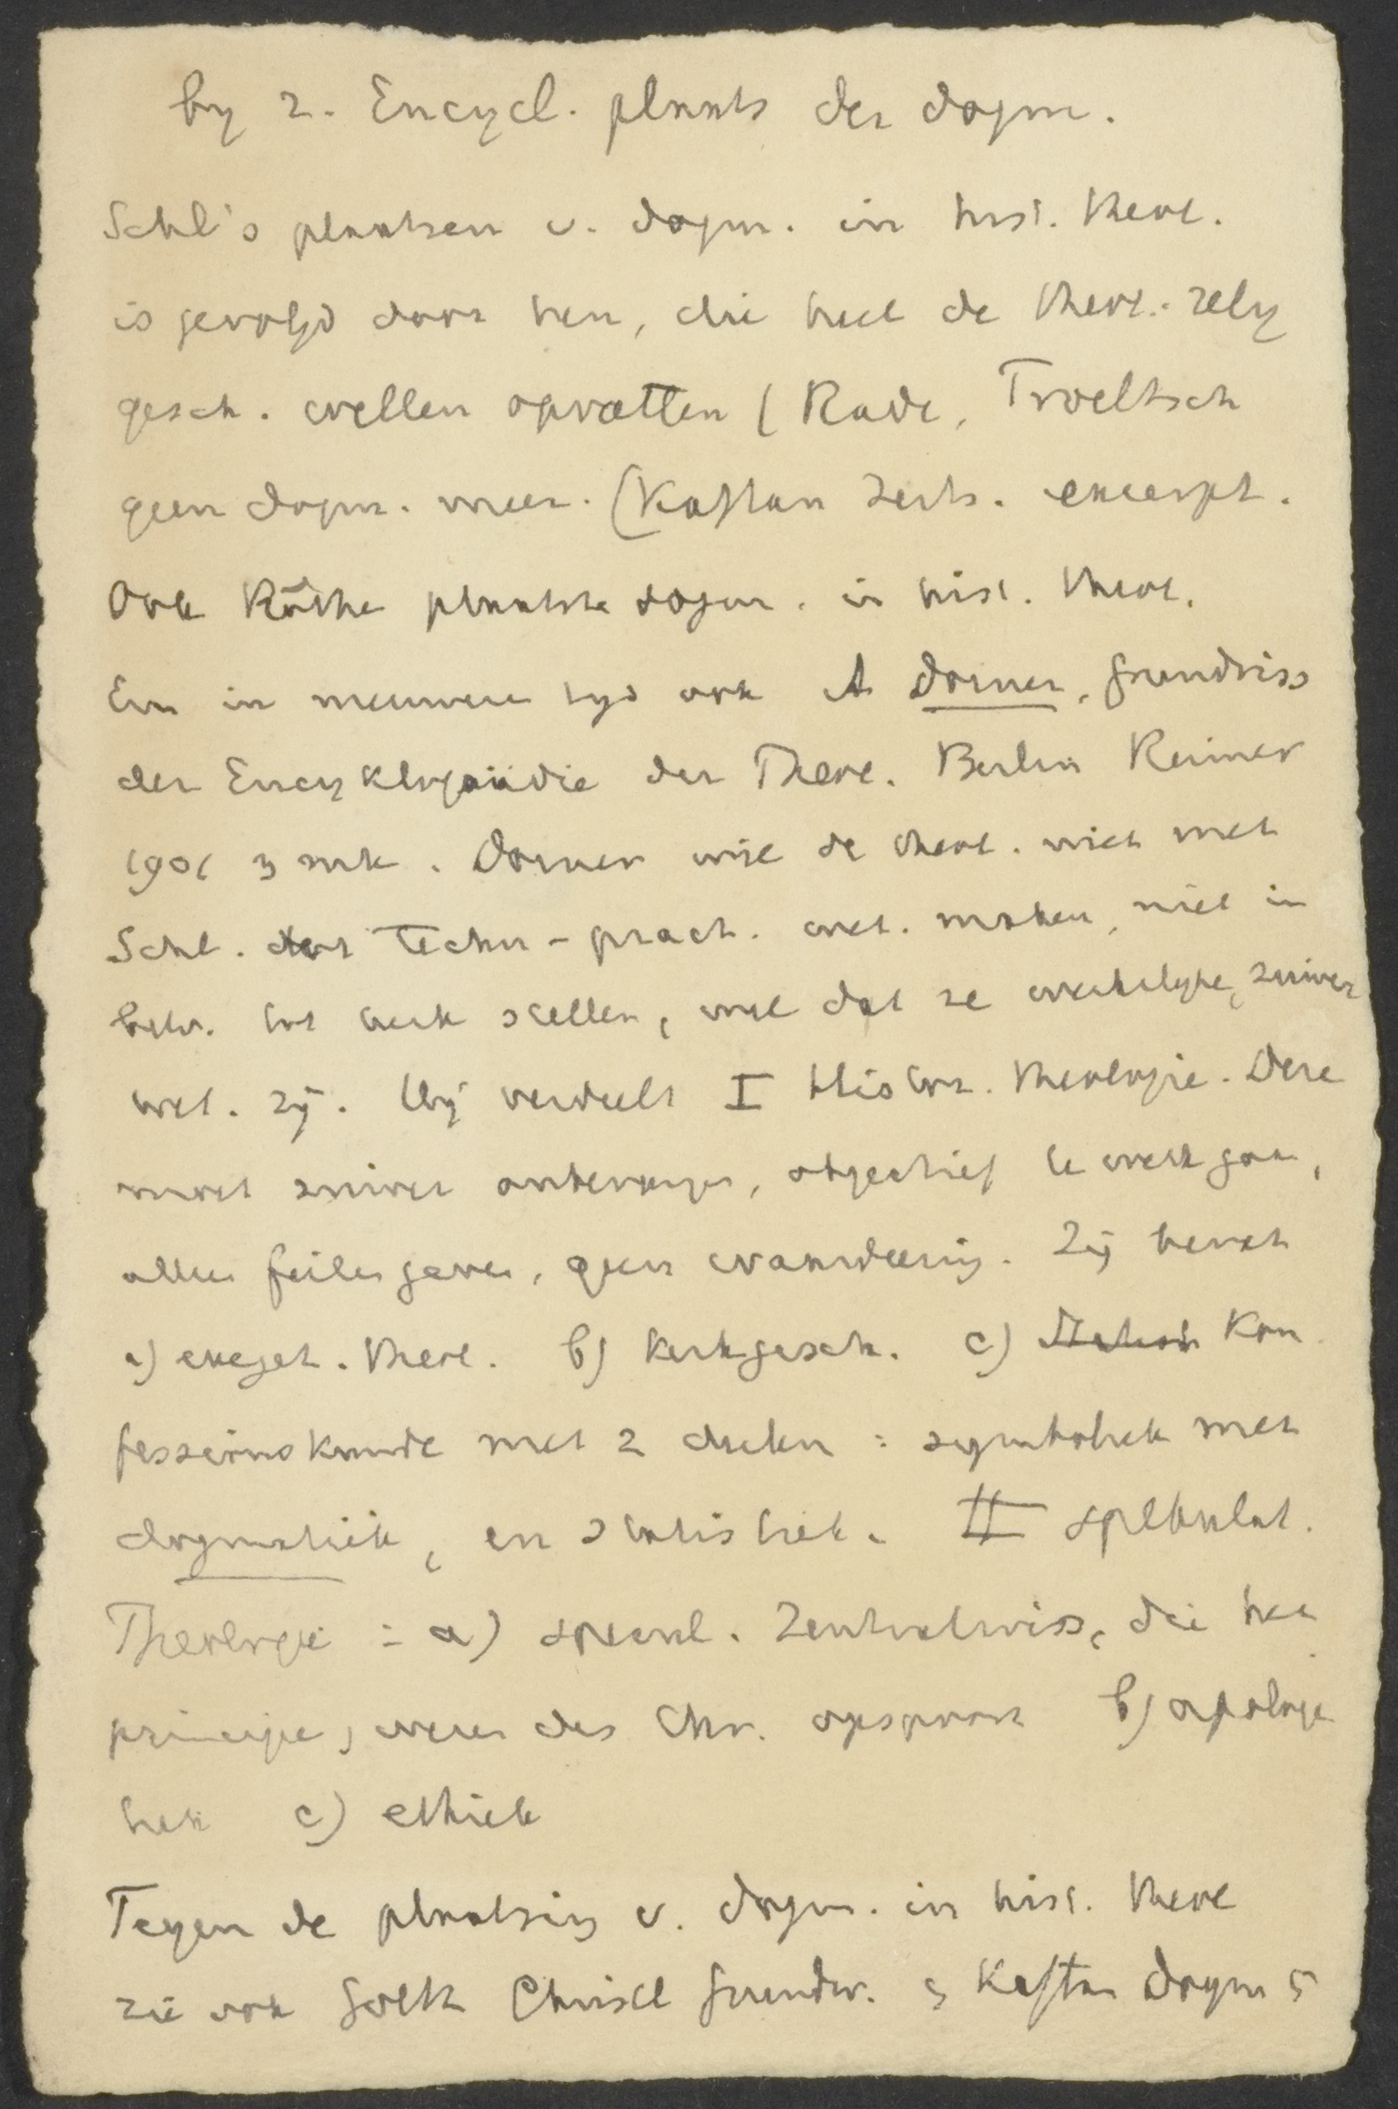 by 2. Encycl. plaats der dogm.
Schl's plaatsen v. dogm. in hist. theol.
is gevolgd door hen, die heel de theol. relig
gesch. willen opvatten (Rade, Troeltsch
geen dogm. meer. (Kaftan Zeits. excerpt.
Ook Räthe plaatste dogm. in hist. theol.
En in nieuwere tyd ook A Dorner, Grundriss
der Encyklopaädie der Theol. Berlin Reimer
1901 3 mk. Dorner wil de theol. niet met
Schl. tot techn-pract. wet. maken, niet in
betr. tot kerk stellen, wil dat ze werkelyke, zuiver
wet. zij. Hij verdeelt I Histor. theologie. Deze
moet zuiver onbevangen, objectief te werk gaan,
alleen feiten geven, geen waardeering. Zij bevat
a) exeget. theol. b) kerkgesch. c) Kon
fessionskunde met 2 deelen: symboliek met
dogmatiek, en statistiek. II spekulat.
Theologie: a) specul. Zentralwiss, die het
principe, wezen des Chr. opspoort b) apologe
tiek c) ethiek
Tegen de plaatsing v. dogm. in hist. theol
zie ook Gottk Christl Grundw. 3 Kaftan Dogm 5